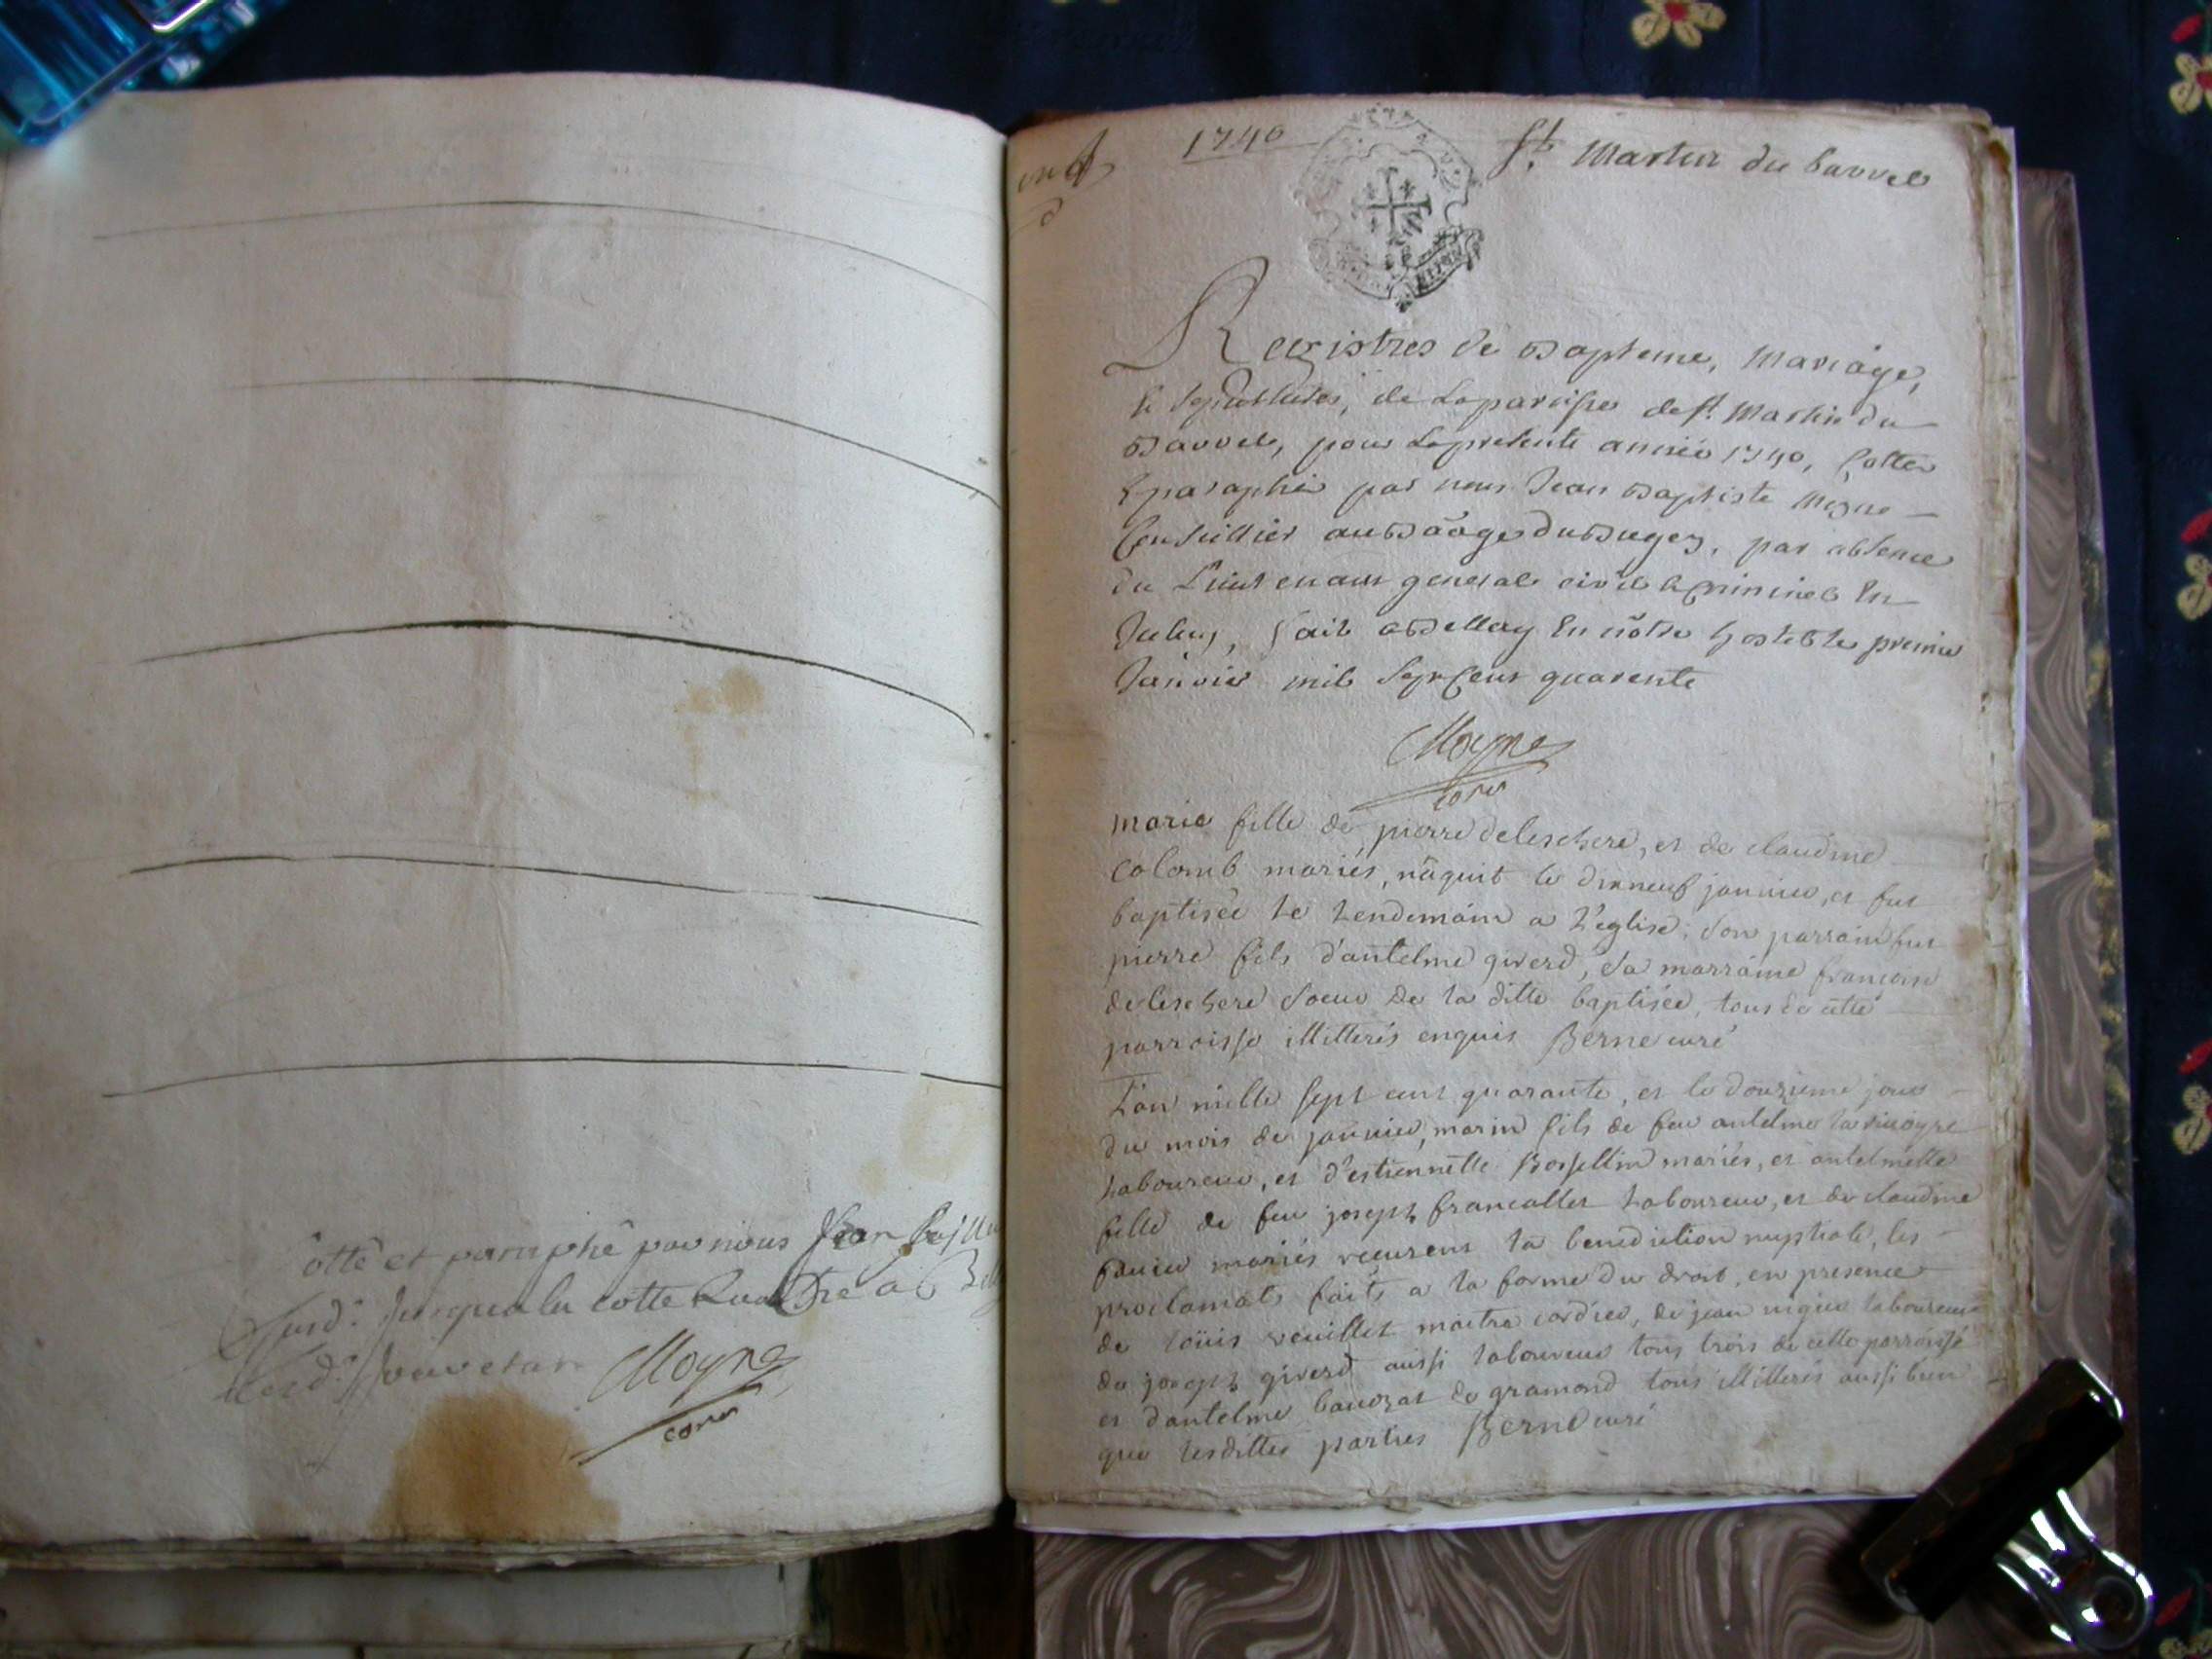 otté et paraphé par nous Jean bap
jusqua la cotte Quattre a B
Moyne
coner
1740
St Martin du bavvel
Registres de Bapteme, Mariage,
& Sepultures, de La paroisse de St Martin du
Bavvel, pour La presente année 1740, Cottez
& paraphé par nous Jean Baptiste Moyne
Conseillier au Bâage du Bugey, par absence
du Lieutenant general civil & criminel En
fait a Bellay En nôtre hostel le premier
Janvier mil Sept Cent quarente
Moyne
coner
marie fille de pierre deleschere, et de claudine
colomb mariés, nâquit le dixneuf janvier, et fut
baptisée le lendemain a l'eglise, son parrain fut
pierre fils d'antelme giverd, sa marraine francoise
deleschere soeur de la ditte baptisée, tous de cette
parroisse illitterés enquis Berne curé
L'an mille sept cent quarante, et le douzieme jour
du mois de janvier, marin fils de feu antelme
laboureur, et d'estiennette Bossellin mariés, et antelmette
fille de feu joseph francallet laboureur, et de claudine
mariés recurent la benediction nuptiale, les
proclamats faits a la forme du droit, en presence
de loüis veuillet maitre cordier, de jean laboureur
de joseph giverd aussi laboureur tous trois de cette parroisse
et d'antelme baudrat de gramond tous illitterés aussi bien
que lesdittes parties Berne curé